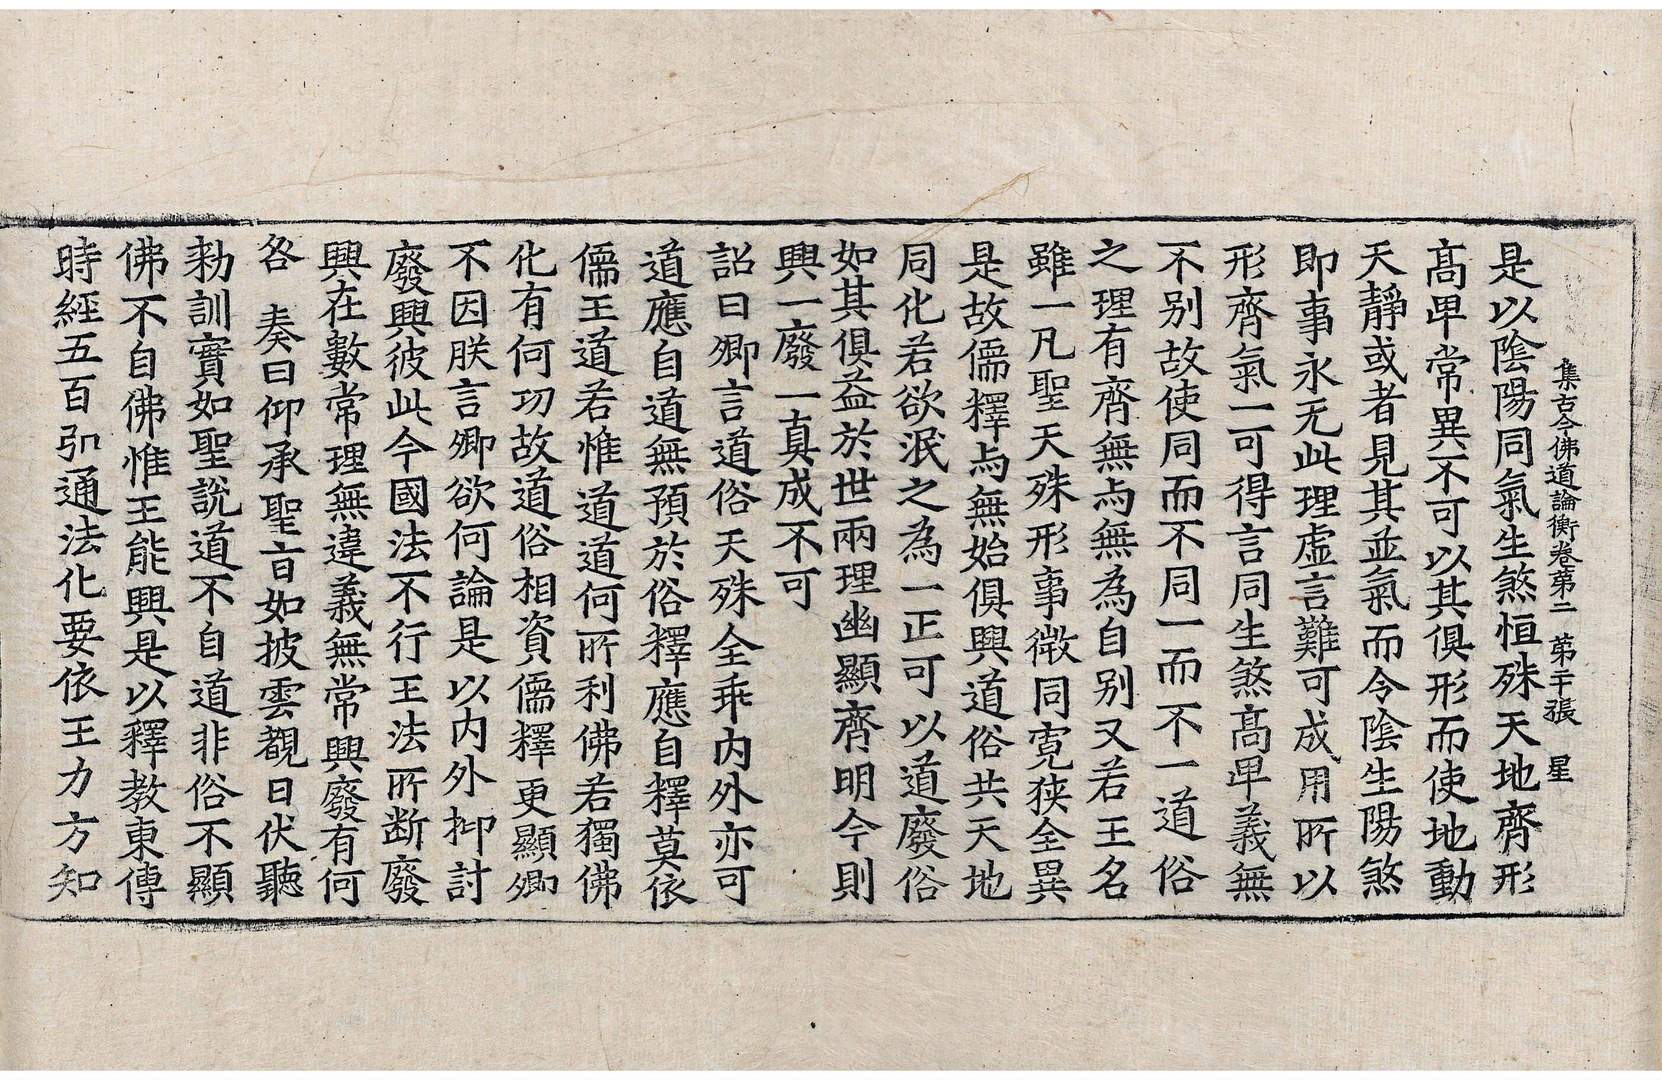 集古今佛道論衡卷第二 第干張 星
是以陰陽同氣生煞恒殊天地齊形
髙卑常異不可以其俱形而使地動
天靜或者見其並氣而令陰生陽煞
即事永无此理虛言難可成用所以
形齊氣一可得言同生煞髙卑義無
不别故使同而不同一而不一道俗
之理有齊無与無為自别又若王名
雖一凡聖天殊形事微同寬狹全異
是故儒釋与無始俱興道俗共天地
同化若欲泯之為一正可以道廢俗
如其俱益於世兩理幽顯齊明今則
興一廢一真成不可
詔曰卿言道俗天殊全乖内外亦可
道應自道無預於俗釋應自釋莫依
儒王道若惟道道何所利佛若獨佛
化有何功故道俗相資儒釋更顯卿
不因朕言卿欲何論是以内外抑討
廢興彼此今國法不行王法所断廢
興在數常理無違義無常興廢有何
咎 奏曰仰承聖旨如披雲覩日伏聽
勑訓實如聖說道不自道非俗不顯
佛不自佛惟王能興是以釋教東傳
時經五百弘通法化要依王力方知